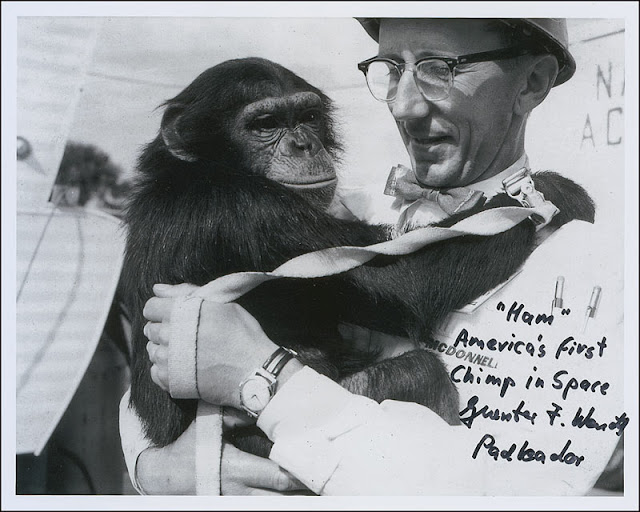 N
AC
McDONNELL
"Ham"
America's first
Chimp in Space
Guenter F. Wendt
Padleader